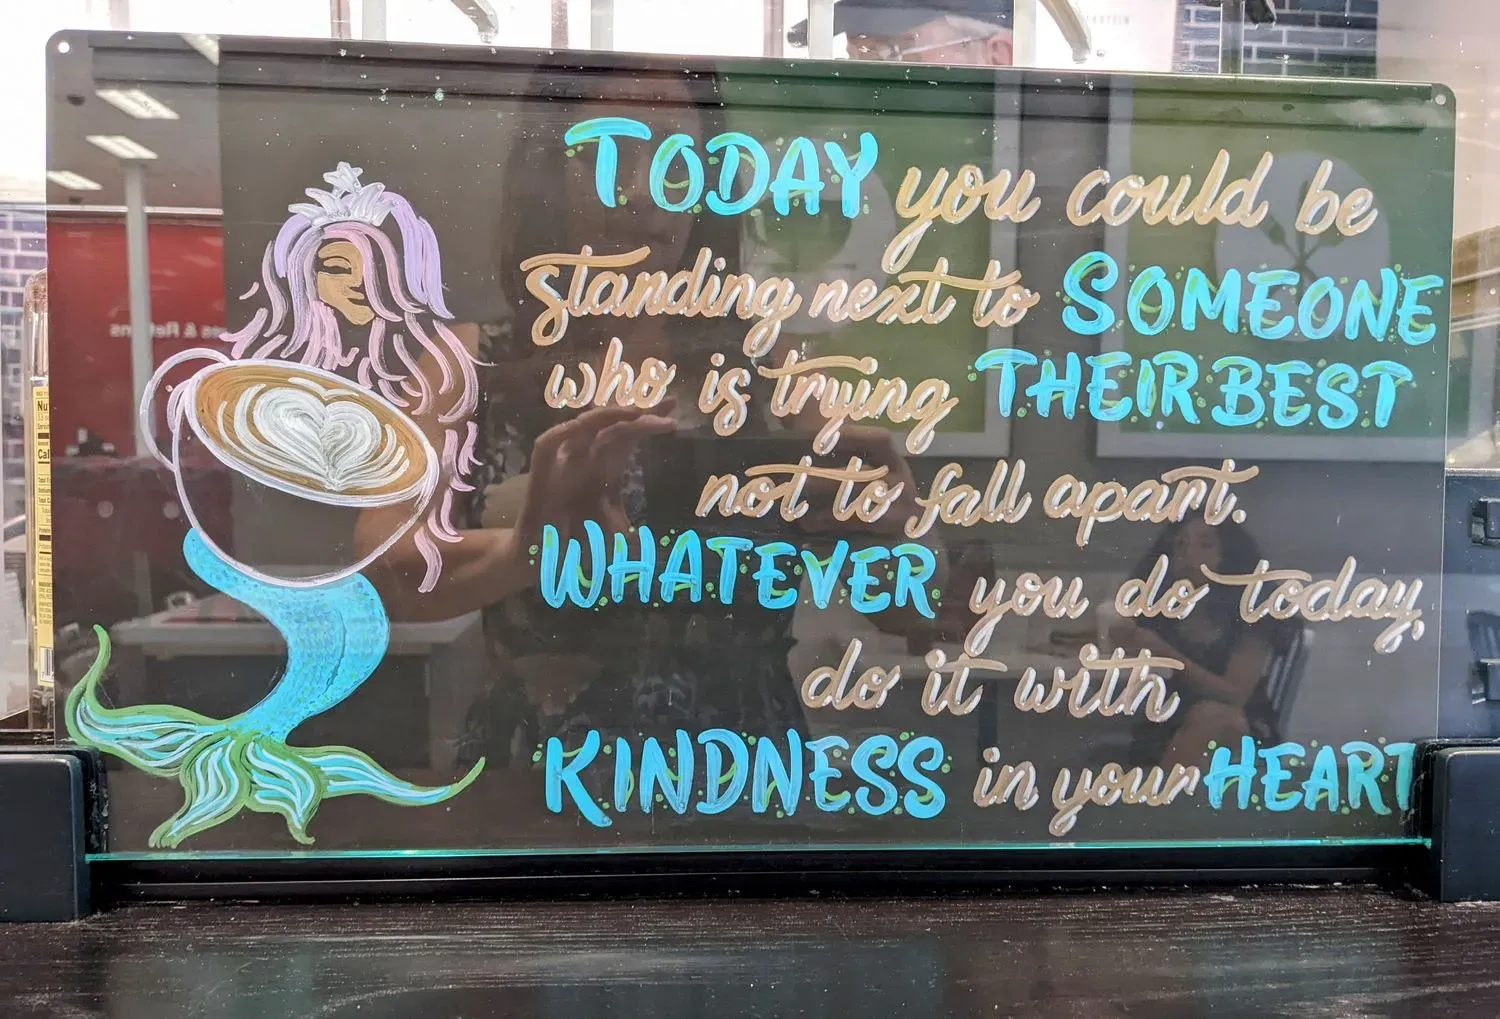 TODAY you could be
standing next to SOMEONE
who is trying THEIR BEST
not to fall apart.
WHATEVER you do today,
do it with
KINDNESS in your HEART